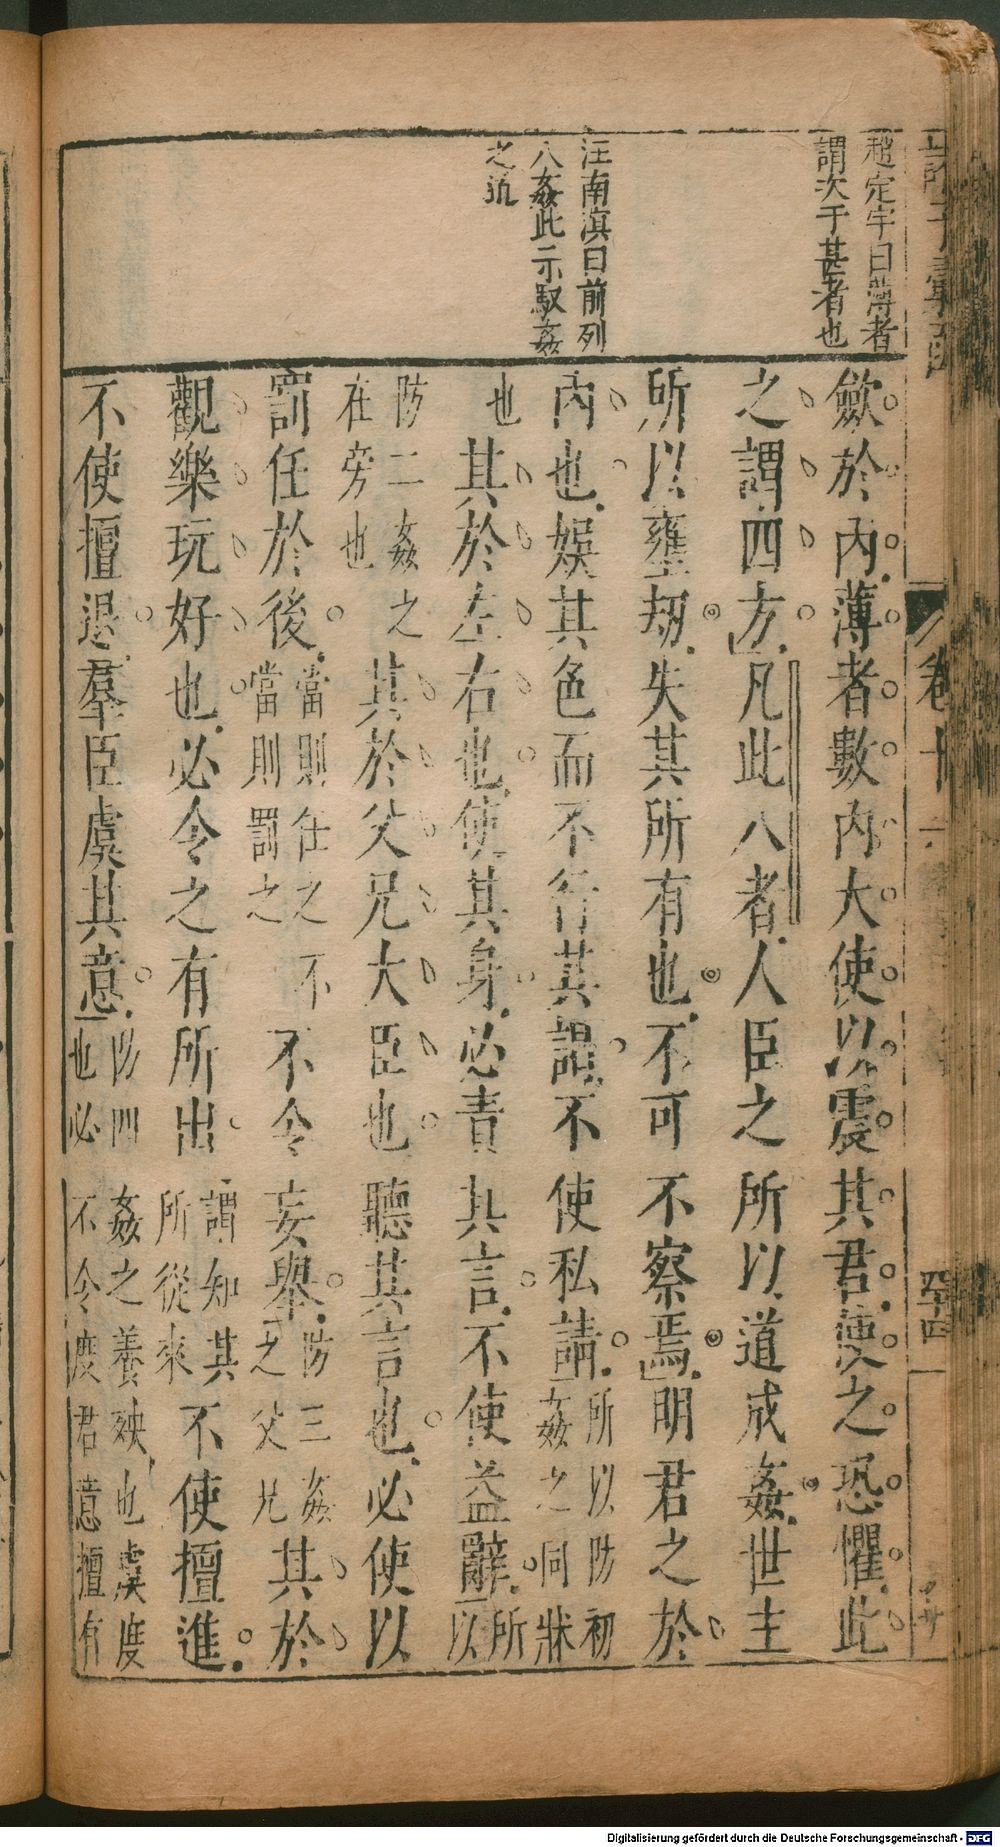 趙定宇曰薄者
謂次于甚者也
汪南溟曰前列
八姦此示馭姦
之術
歛於內薄者數內大使以震其君使之恐懼此
之謂四方凡此八者人臣之所以道成姦世主
所以壅劫失其所有也不可不察焉明君之於
內也娛其色而不行其謁不使私請所以防初姦之同牀
也其於左右也使其身必責其言不使益辭所以
防二姦之在旁也其於父兄大臣也聽其言也必使以
罰任於後當則任之不當則罰之不令妄舉防三姦之父兄其於
觀樂玩好也必令之有所出謂知其所從來不使擅進
不使擅退羣臣虞其意防四姦之養殃也虞度也必不令度君意擅有
卷十
四十四
Digitalisierung gefördert durch die Deutsche Forschungsgemeinschaft - DFG